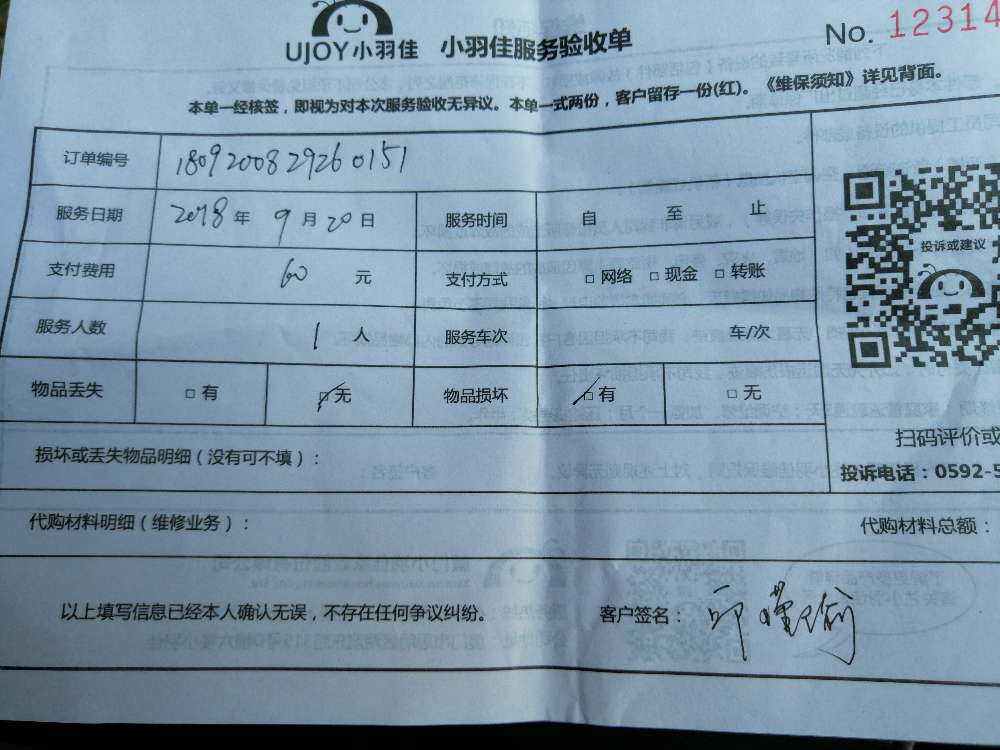 UJOY小羽佳 小羽佳服务验收单
No. 12314
本单一经核签，即视为对本次服务验收无异议。本单一式两份，客户留存一份(红)。《维保须知》详见背面。
订单编号 1809200829260151
服务日期 2018年9月20日 服务时间 自 至 止
投诉或建议
支付费用 60 元 支付方式 □ 网络 □ 现金 □ 转账
服务人数 1 人 服务车次 车/次
物品丢失 □ 有 ☑ 无 物品损坏 ☑ 有 □ 无
扫码评价或
损坏或丢失物品明细（没有可不填）：
投诉电话：0592-5
代购材料明细（维修业务）： 代购材料总额：
以上填写信息已经本人确认无误，不存在任何争议纠纷。 客户签名：